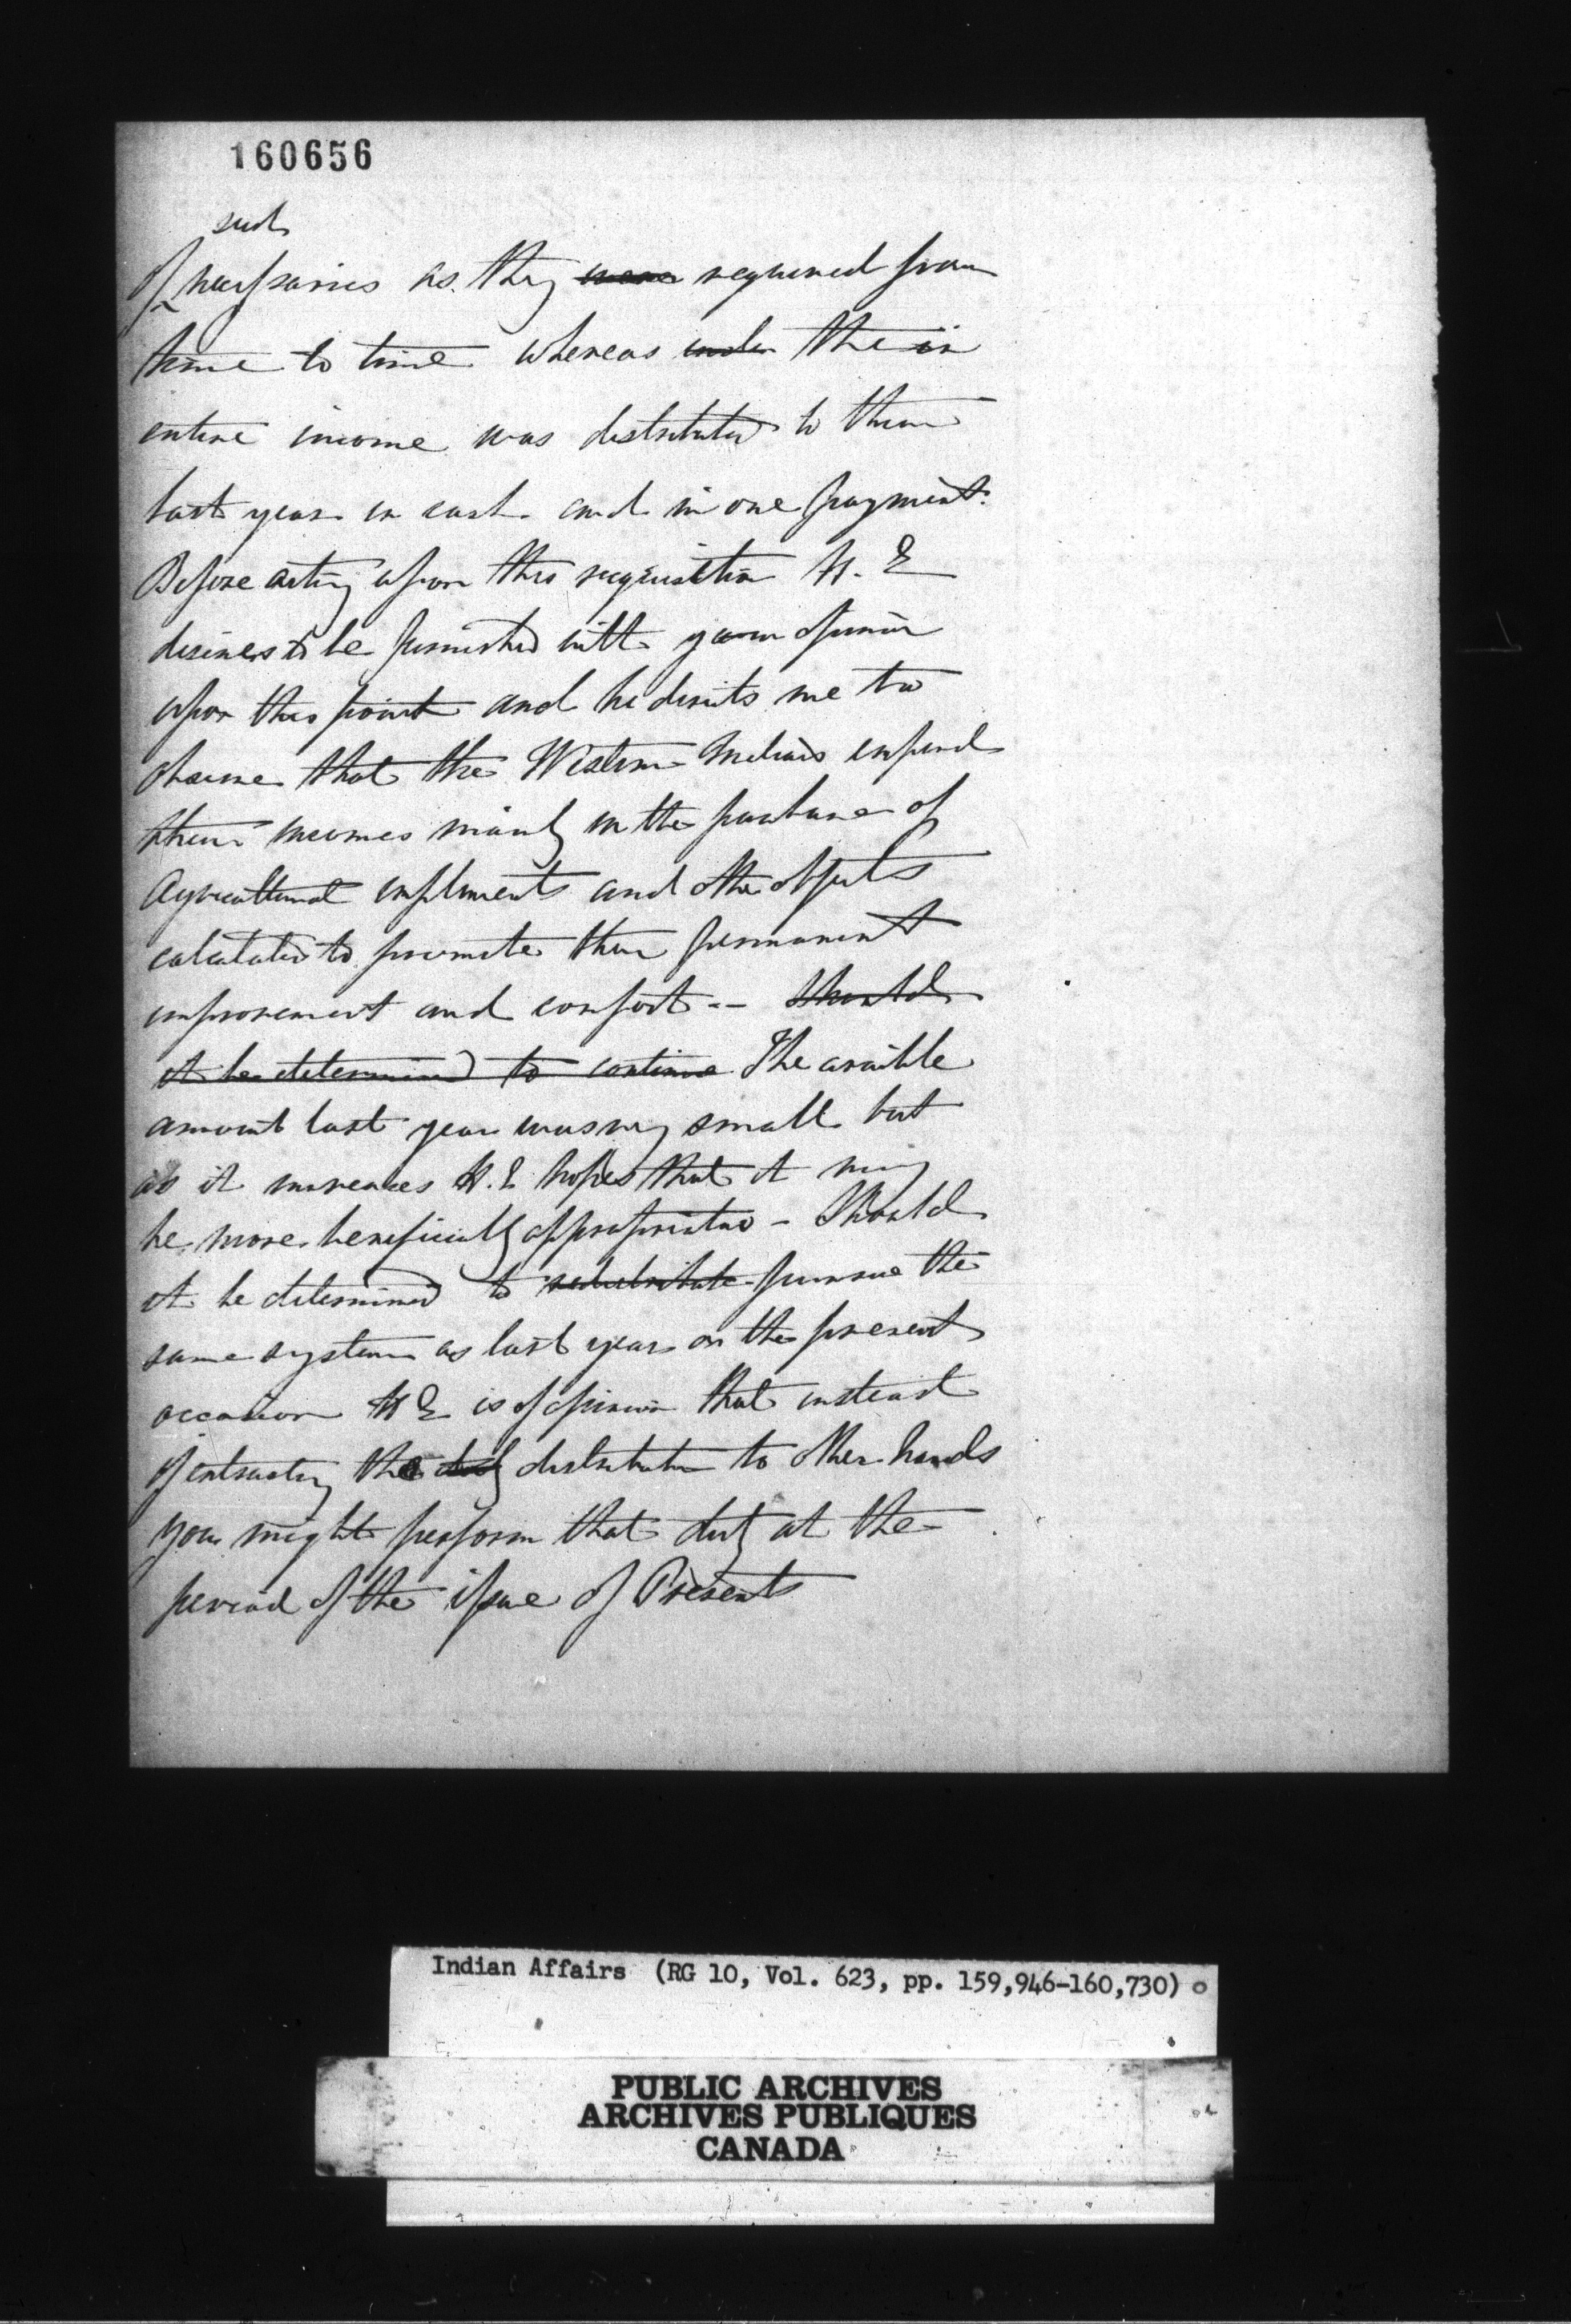 160656
such
of necessaries as they were required from
time to time whereas under their
entire income was distributed to them
last year in cash and in one payment.
Before acting upon this requisition H. E
desires to be furnished with your opinion
upon this point and he directs me to
observe that the Western Indians expend
their incomes mainly in the purchase of
Agricultural implements and other objects
calculated to promote their permanent
improvement and comfort -- Should
it be determined to continue The availble
amount last year was very small but
as it increases H. E hopes that it may
be more beneficially appropriated - Should
it be determined to redistribute pursue the
same system as last year on the present
occasion H E is of opinion that instead
of entrusting the duty distribution to other hands
you might perform that duty at the
period of the issue of Presents
Indian Affairs (RG 10, Vol. 623, pp. 159,946-160,730)
PUBLIC ARCHIVES
ARCHIVES PUBLIQUES
CANADA